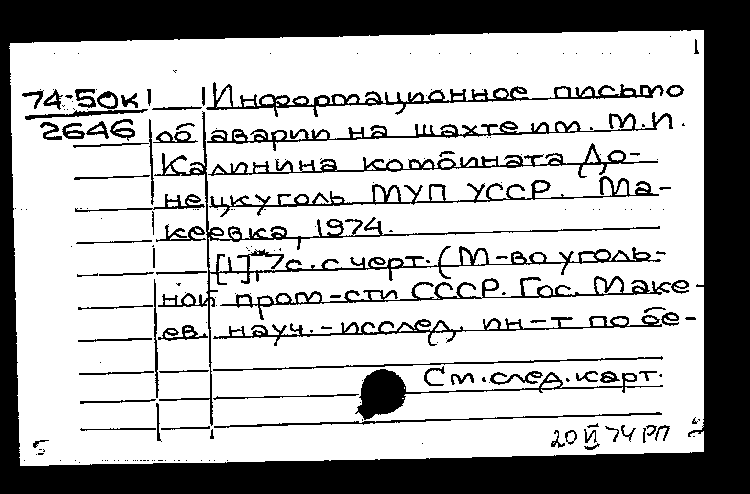 1
74-50к Информационное письмо
2646 об аварии на шахте им. М.И.
Калинина комбината До-
нецкуголь МУП УССР. Ма-
кеевка, 1974.
[1], 7с. с черт. (М-во уголь-
ной пром-сти СССР. Гос. Маке-
ев. науч.-исслед. ин-т по бе-
См. след. карт.
5 20 VI 74 РП